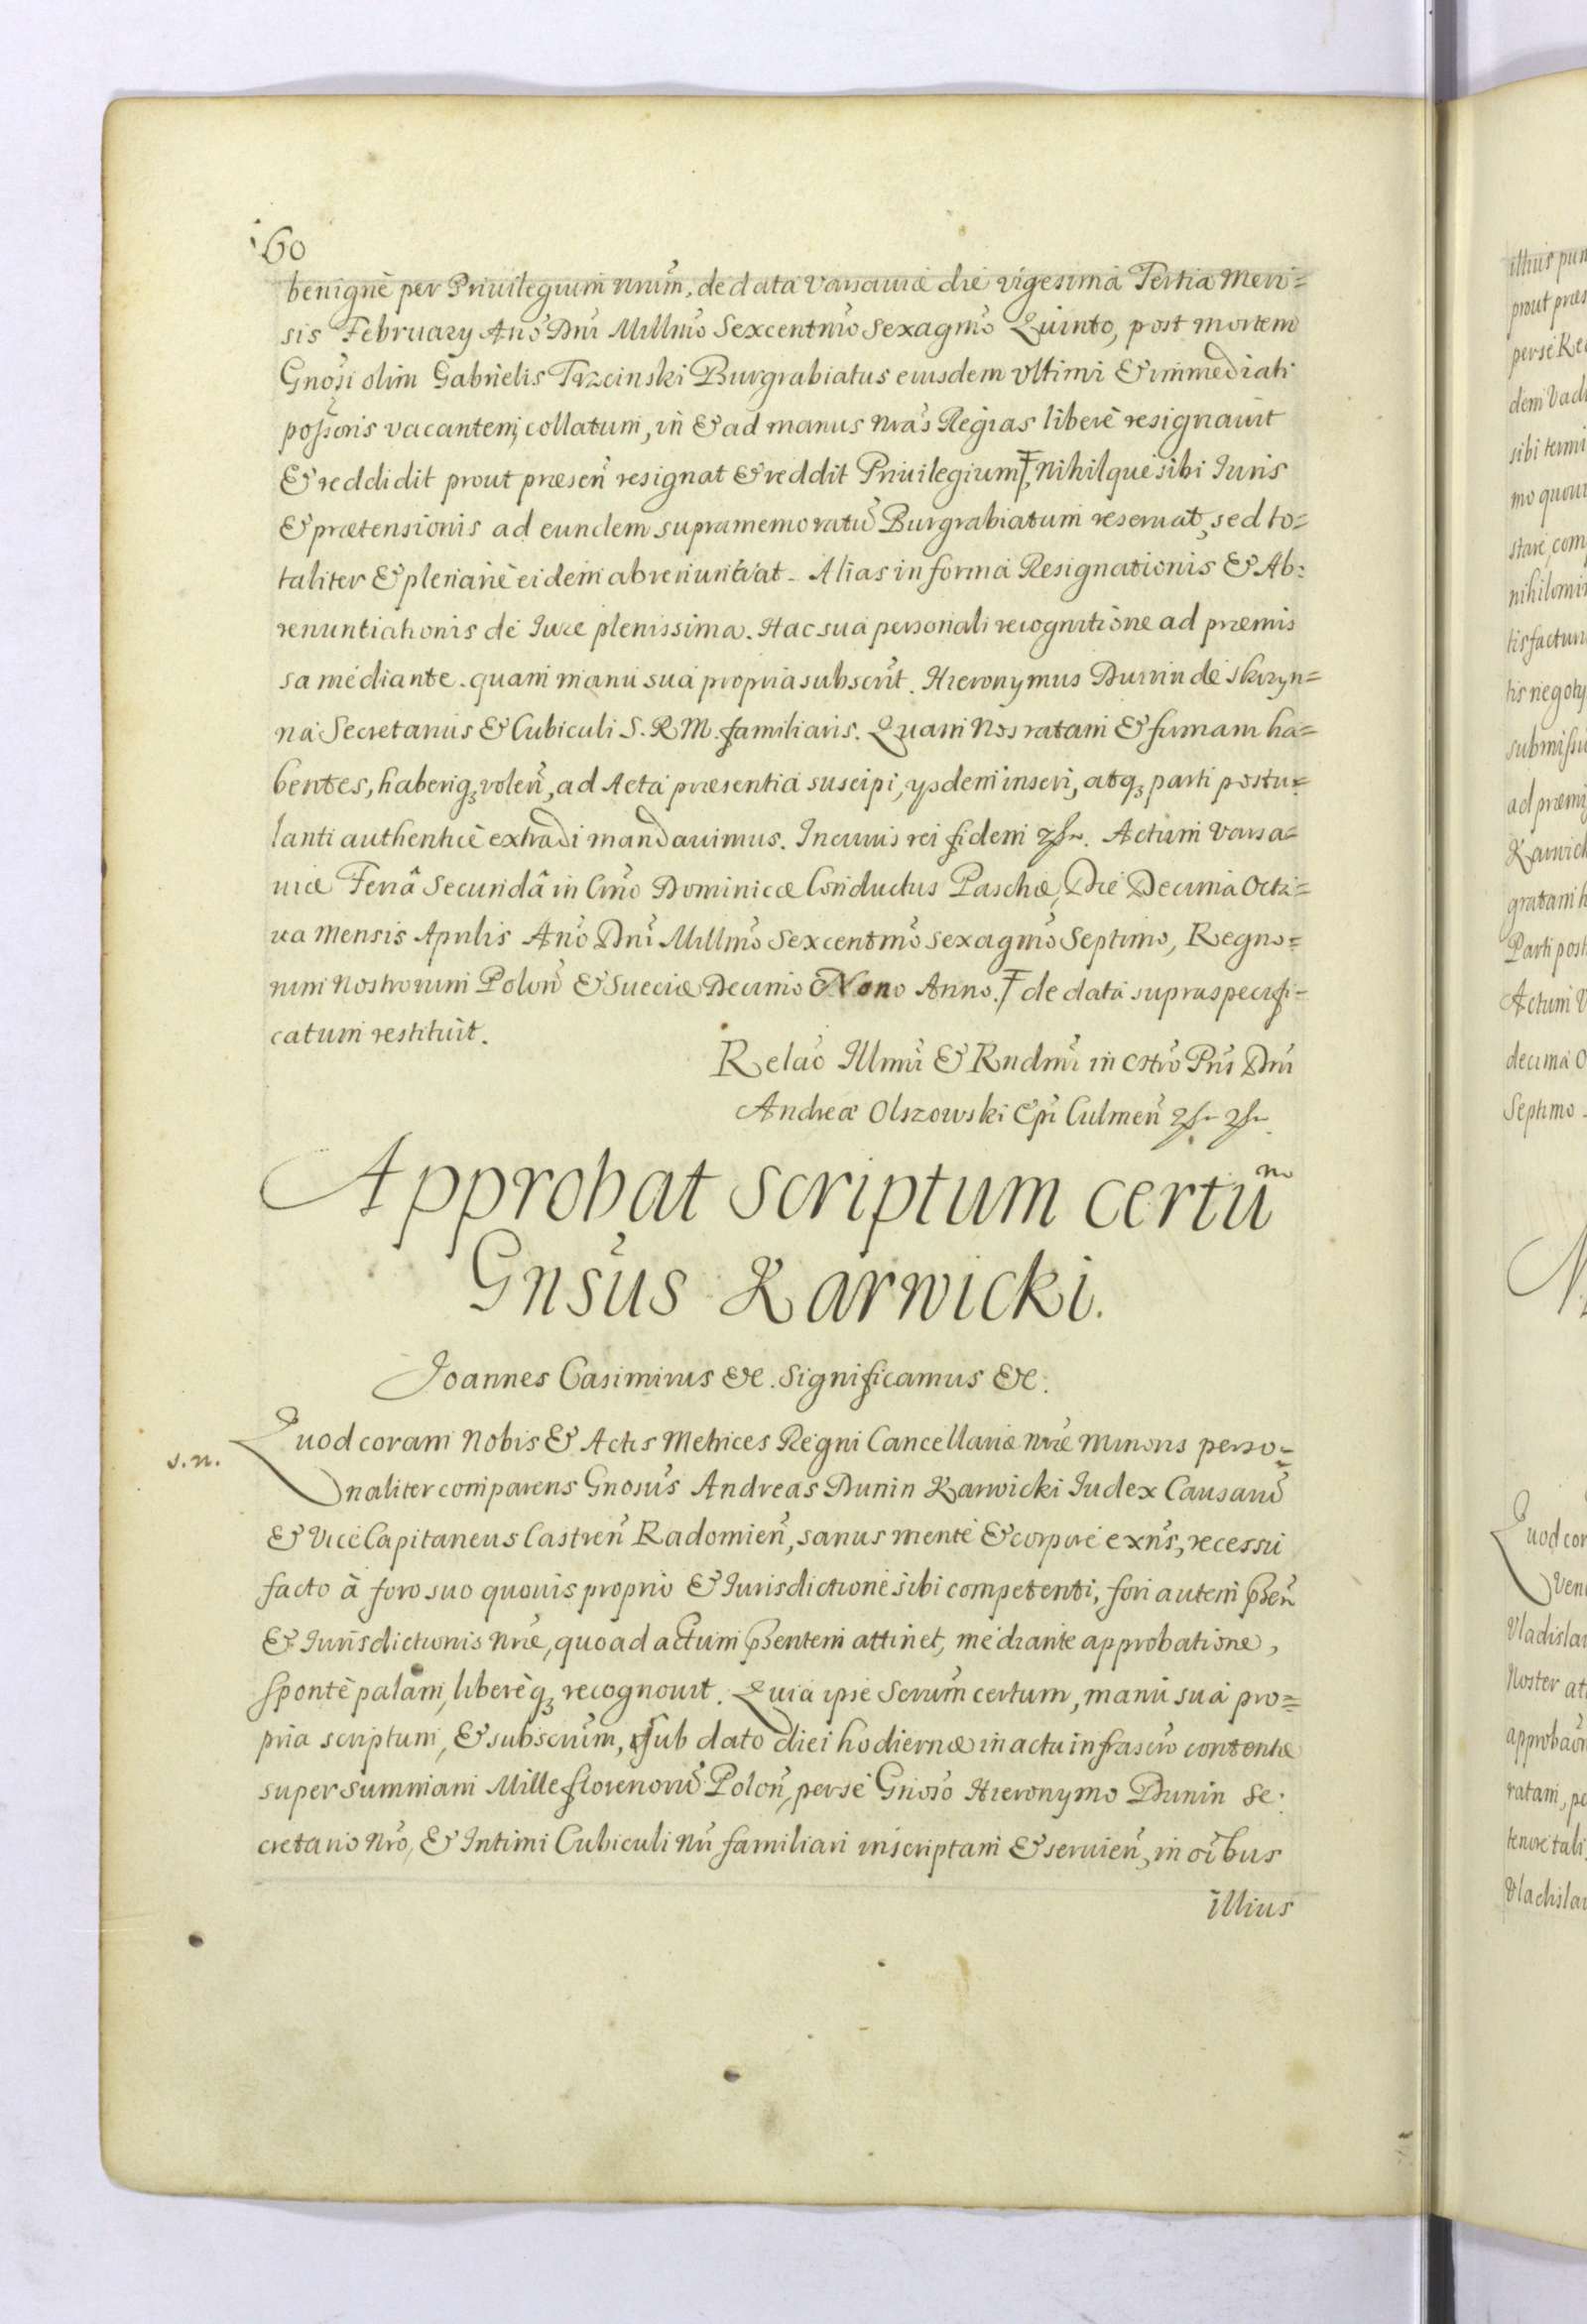 160
benignè per Priuilegium nrum̃, de data Varsauiæ die vigesima Tertia Men=
sis February Año Dnĩ Millmõ Sexcentmõ Sexagmõ Quinto, post mortem
Gnosĩ olim Gabrielis Trzcinski Burgrabiatus eiusdem vltimi & immediati
possoris̃ vacantem, collatum, in & ad manus nrãs Regias liberè resignauit
& reddidit prout præseñ resignat & reddit Priuilegium Ŧ, Nihilque sibi Iuris
& prætensionis ad eundem supramemoratũ Burgrabiatum reseruat, sed to=
taliter & plenariè eidem abrenuntiat. Alias in forma Resignationis & Ab=
renuntiationis de Iure plenissima. Hac sua personali recognitione ad præmis
sa mediante. quam manu sua propria subscrĩt. Hieronymus Dunin de Skrzyn=
na Secretarius & Cubiculi S. R. M. familiaris. Quam Nos ratam & firmam ha=
bentes, haberiq₃ voleñ, ad Acta præsentia suscipi, ysdem inseri, atq₃ parti postu=
lanti authenticè extradi mandauimus. In cuius rei fidem . Actum Varsa=
uiæ Feriâ Secundâ in Crñõ Dominicæ Conductus Paschæ, Die Decima Octa=
ua Mensis Aprilis Año Dnĩ Millmõ Sexcentmõ Sexagmõ Septimo, Regno=
rum Nostrorum Poloñ & Sueciæ Decimo Nono Anno. Ŧ de data supraspecifi=
catum restituit.
Relaõ Illmĩ & Rndmĩ in Chrõ Prĩs Dnĩ
Andreæ Olszowski Epĩ Culmeñ
Approbat Scriptum certũm
Gnsũs Karwicki.
Joannes Casimirus &c. Significamus &c.
s.n.
Quod coram Nobis & Actis Metrices Regni Cancellariæ nrẽ Minoris perso=
naliter comparens Gnosũs Andreas Dunin Karwicki Iudex Causarũ
& ViceCapitaneus Castreñ Radomieñ, sanus mente & corpore exñs, recessu
facto à foro suo quouis proprio & Iurisdictione sibi competenti, fori autem p̃señ
& Iurisdictionis nrẽ, quoad actum p̃sentem attinet, mediante approbatione,
spontè palam, liberèq₃ recognouit. Quia ipse Scrum̃ certum, manu sua pro=
pria scriptum, & subscrum̃, sub dato diei hodiernæ in actu infrascrõ contentæ
super summam Mille florenorũ Poloñ, per se Gnosõ Hieronymo Dunin Se:
cretario nrõ, & Intimi Cubiculi nrĩ familiari inscriptam & seruieñ, in oĩbus
illius